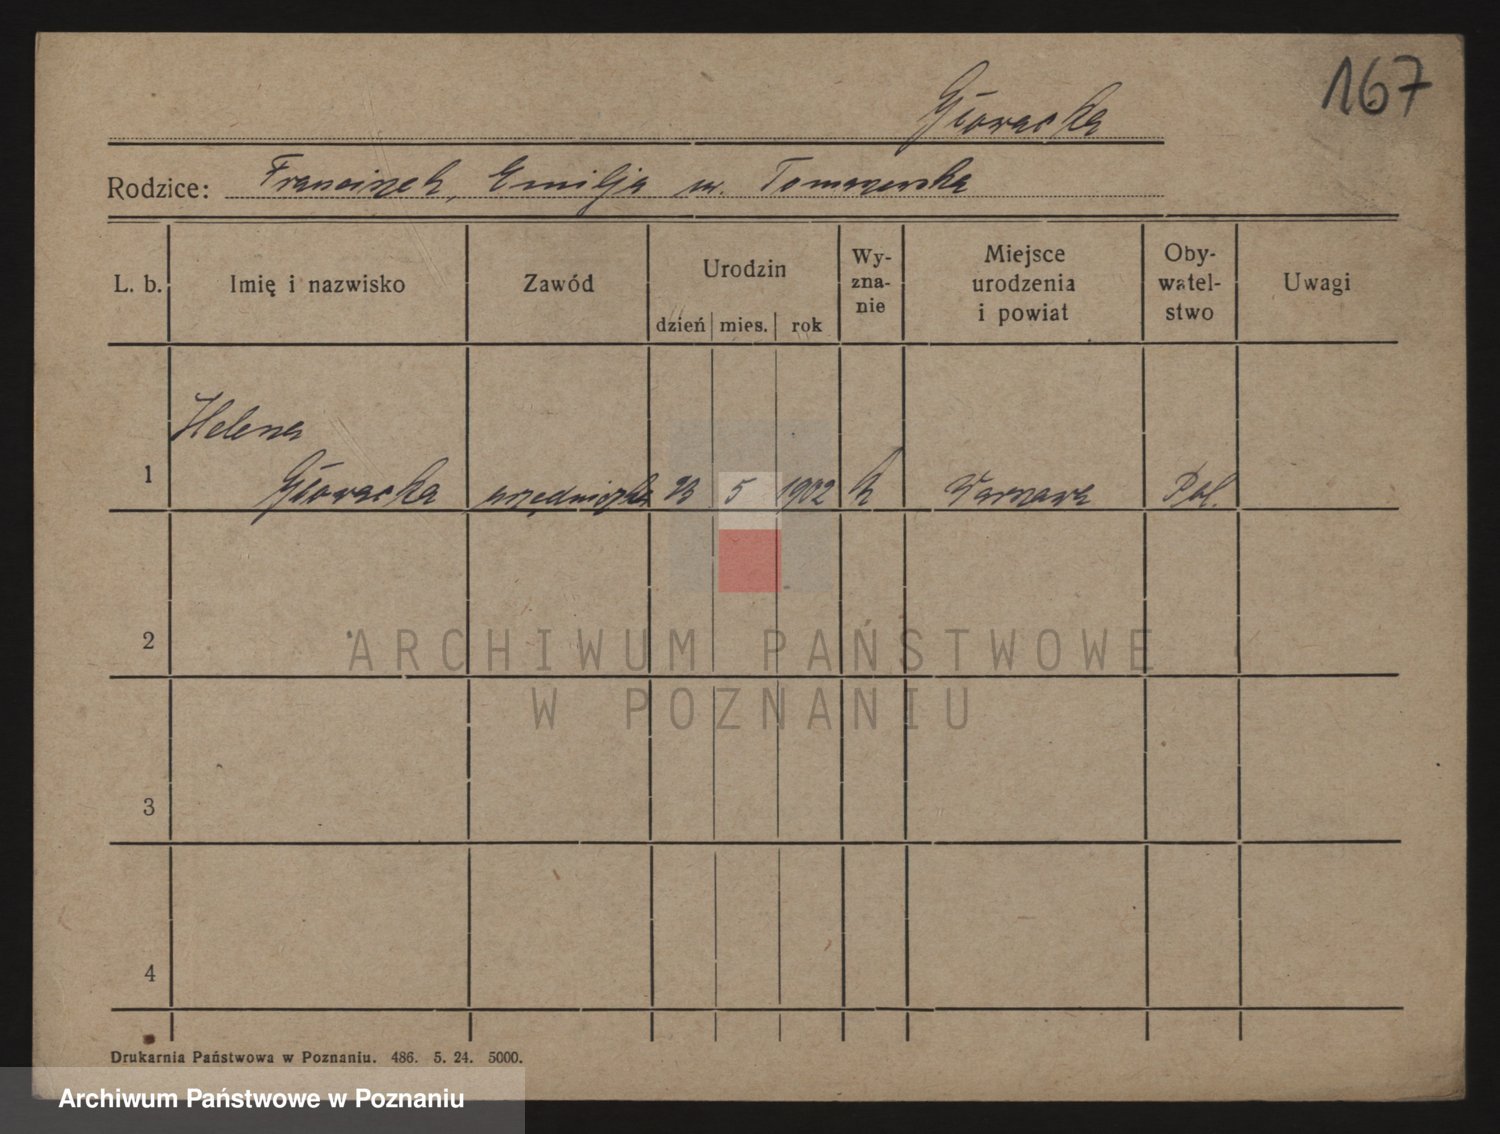 167
Głowacka
Rodzice: Franciszek, Emilja ur. Tomaszewska
L. b. Imię i nazwisko Zawód Urodzin dzień mies. rok Wy- zna- nie Miejsce urodzenia i powiat Oby- watel- stwo Uwagi
Helena
1 Głowacka urzędniczka 23 5 1902 k Warszawa Pol.
2
ARCHIWUM PAŃSTWOWE
W POZNANIU
3
4
Drukarnia Państwowa w Poznaniu. 486. 5. 24. 5000.
Archiwum Państwowe w Poznaniu